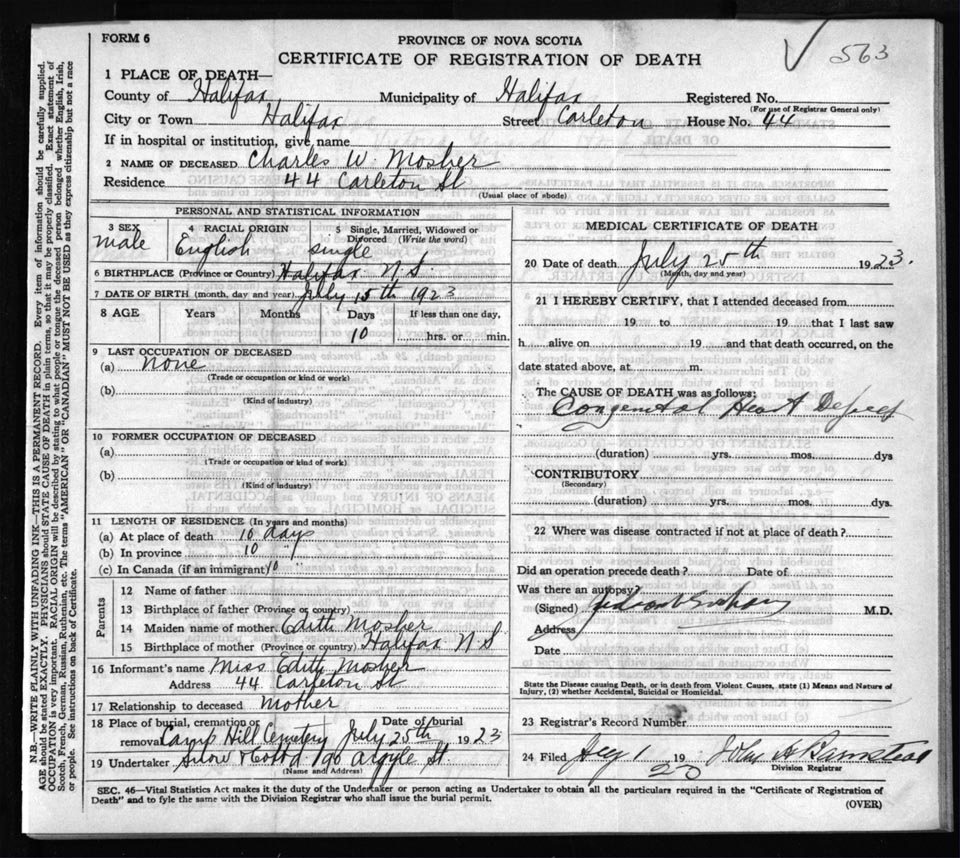 FORM 6
PROVINCE OF NOVA SCOTIA
563
CERTIFICATE OF REGISTRATION OF DEATH
1 PLACE OF DEATH—
County of Halifax Municipality of Halifax Registered No.
(For use of Registrar General only)
City or Town Halifax Street Carleton House No. 44
If in hospital or institution, give name
2 NAME OF DECEASED Charles W. Mosher
Residence 44 Carleton St
(Usual place of abode)
PERSONAL AND STATISTICAL INFORMATION
3 SEX 4 RACIAL ORIGIN 5 Single, Married, Widowed or Divorced (Write the word)
male English single
6 BIRTHPLACE (Province or Country) Halifax N S.
7 DATE OF BIRTH (month, day and year) July 15th 1923
8 AGE Years Months Days If less than one day,
10 hrs. or min.
9 LAST OCCUPATION OF DECEASED
(a) None
(Trade or occupation or kind or work)
(b)
(Kind of industry)
10 FORMER OCCUPATION OF DECEASED
(a)
(Trade or occupation or kind of work)
(b)
(Kind of industry)
11 LENGTH OF RESIDENCE (In years and months)
(a) At place of death 10 days
(b) In province 10 "
(c) In Canada (if an immigrant) 10 "
Parents
12 Name of father
13 Birthplace of father (Province or country)
14 Maiden name of mother Edith Mosher
15 Birthplace of mother (Province or country) Halifax N S
16 Informant's name Miss Edith Mosher
Address 44 Carleton St
17 Relationship to deceased Mother
18 Place of burial, cremation or Date of burial
removal Camp Hill Cemetery July 25th 1923
19 Undertaker Snow & Co Ltd 190 Argyle St.
(Name and Address)
MEDICAL CERTIFICATE OF DEATH
20 Date of death July 25th 1923.
(Month, day and year)
21 I HEREBY CERTIFY, that I attended deceased from
19 to 19 that I last saw
h alive on 19 and that death occurred, on the
date stated above, at m.
The CAUSE OF DEATH was as follows:
Congenital Heart
(duration) yrs. mos. dys
CONTRIBUTORY
(Secondary)
(duration) yrs. mos. dys.
22 Where was disease contracted if not at place of death?
Did an operation precede death? Date of
Was there an autopsy?
(Signed) M.D.
Address
Date
State the Disease causing Death, or in death from Violent Causes, state (1) Means and Nature of
Injury, (2) whether Accidental, Suicidal or Homicidal.
23 Registrar's Record Number
24 Filed 1 19 John A Barnstead
Division Registrar
SEC. 46—Vital Statistics Act makes it the duty of the Undertaker or person acting as Undertaker to obtain all the particulars required in the "Certificate of Registration of
Death" and to fyle the same with the Division Registrar who shall issue the burial permit.
(OVER)
N.B.—WRITE PLAINLY WITH UNFADING INK—THIS IS A PERMANENT RECORD. Every item of information should be carefully supplied.
AGE should be stated EXACTLY. PHYSICIANS should STATE CAUSE OF DEATH in plain terms, so that it may be properly classified. Exact statement of
OCCUPATION is very important. RACIAL ORIGIN will be described by stating to what people or tongue the deceased person belonged whether English, Irish,
Scotch, French, German, Russian, Ruthenian, etc. The terms "AMERICAN" OR "CANADIAN" MUST NOT BE USED as they express citizenship but not a race
or people. See instructions on back of Certificate.